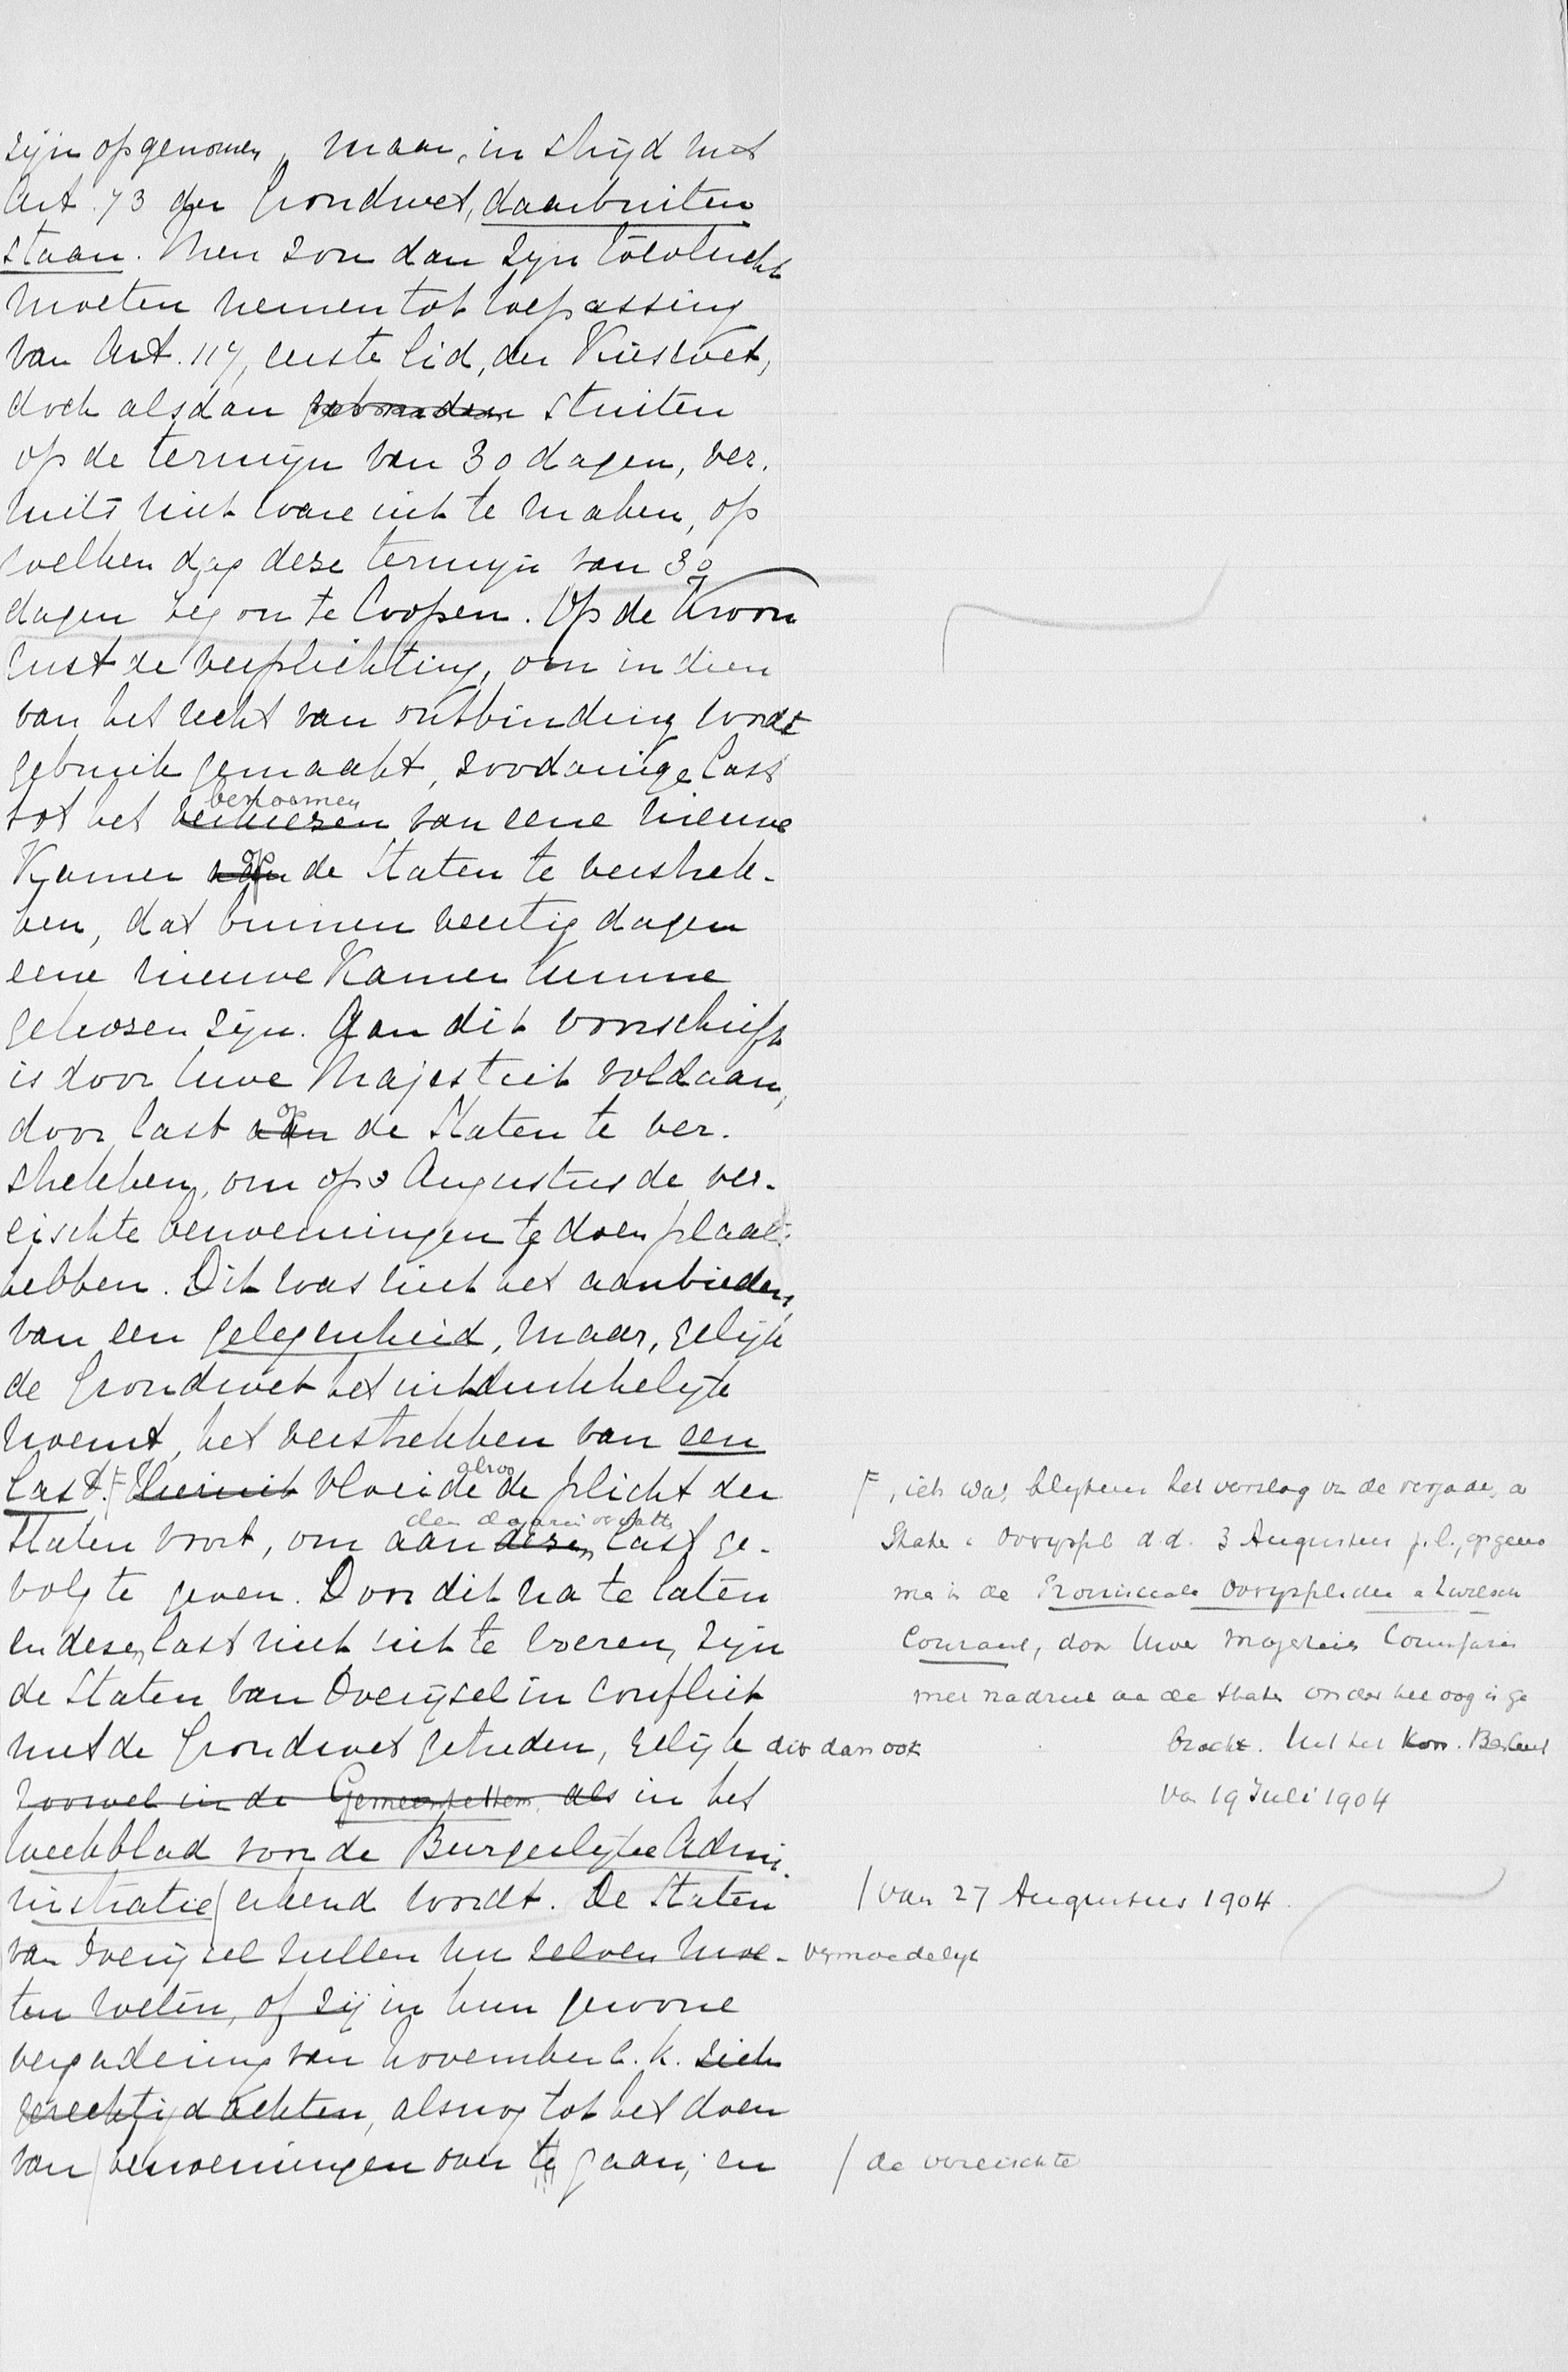 zijn opgenomen, maar, in strijd met
Art. 73 der Grondwet, daarbuiten
staan. Men zou dan zijn toevlucht
moeten nemen tot toepassing
van Art. 117, eerste lid, der Kieswet,
doch alsdan stuiten
op de termijn van 30 dagen, ver-
mits niet ware uit te maken, op
welken dag deze termijn van 30
dagen begon te loopen. Op de Kroon
rust de verplichting, om indien
van het recht van ontbinding wordt
gebruik gemaakt, zoodanige last
benoemen
tot het verkiezen van eene nieuwe
op
Kamer aan de Staten te verstrek-
ken, dat binnen veertig dagen
eene nieuwe Kamer kunne
gekozen zijn. Aan dit voorschrift
is door Uwe Majesteit voldaan,
op
door last aan de Staten te ver-
strekken, om op 3 Augustus de ver-
eischte benoemingen te doen plaats
hebben. Dit was niet het aanbieden
van een gelegenheid, maar, gelijk
de Grondwet het uitdrukkelijk
noemt, het verstrekken van een
alzoo
last. F Hieruit vloeide de plicht der
den daarin vervatten
Staten voort, om aan dezen last ge-
volg te geven. Door dit na te laten
en dezen last niet uit te voeren, zijn
de Staten van Overijsel in conflict
met de Grondwet getreden, gelijk dit dan ook
zoowel in de Gemeentestem als in het
Weekblad voor de Burgerlijke Admi-
nistratie / erkend wordt. De Staten
van Overijsel zullen nu zelven moe- vermoedelijk
ten weten, of zij in hun gewone
vergadering van November e.k. zich
gerechtigd achten, alsnog tot het doen
van / benoemingen over te gaan, en
F, iets was, blijkens het verslag van de vergade
Staten Overijssel d.d. 3 Augustus j.l., opgeno
men in de Provinciale Overijsselsche en Zwolsche
Courant, door Uwer Majesteits Commissaris
met nadruk aan de Staten onder het oog is ge
bracht. Uit het Kon. Besluit
van 19 Juli 1904
/ van 27 Augustus 1904.
/ de vereischte